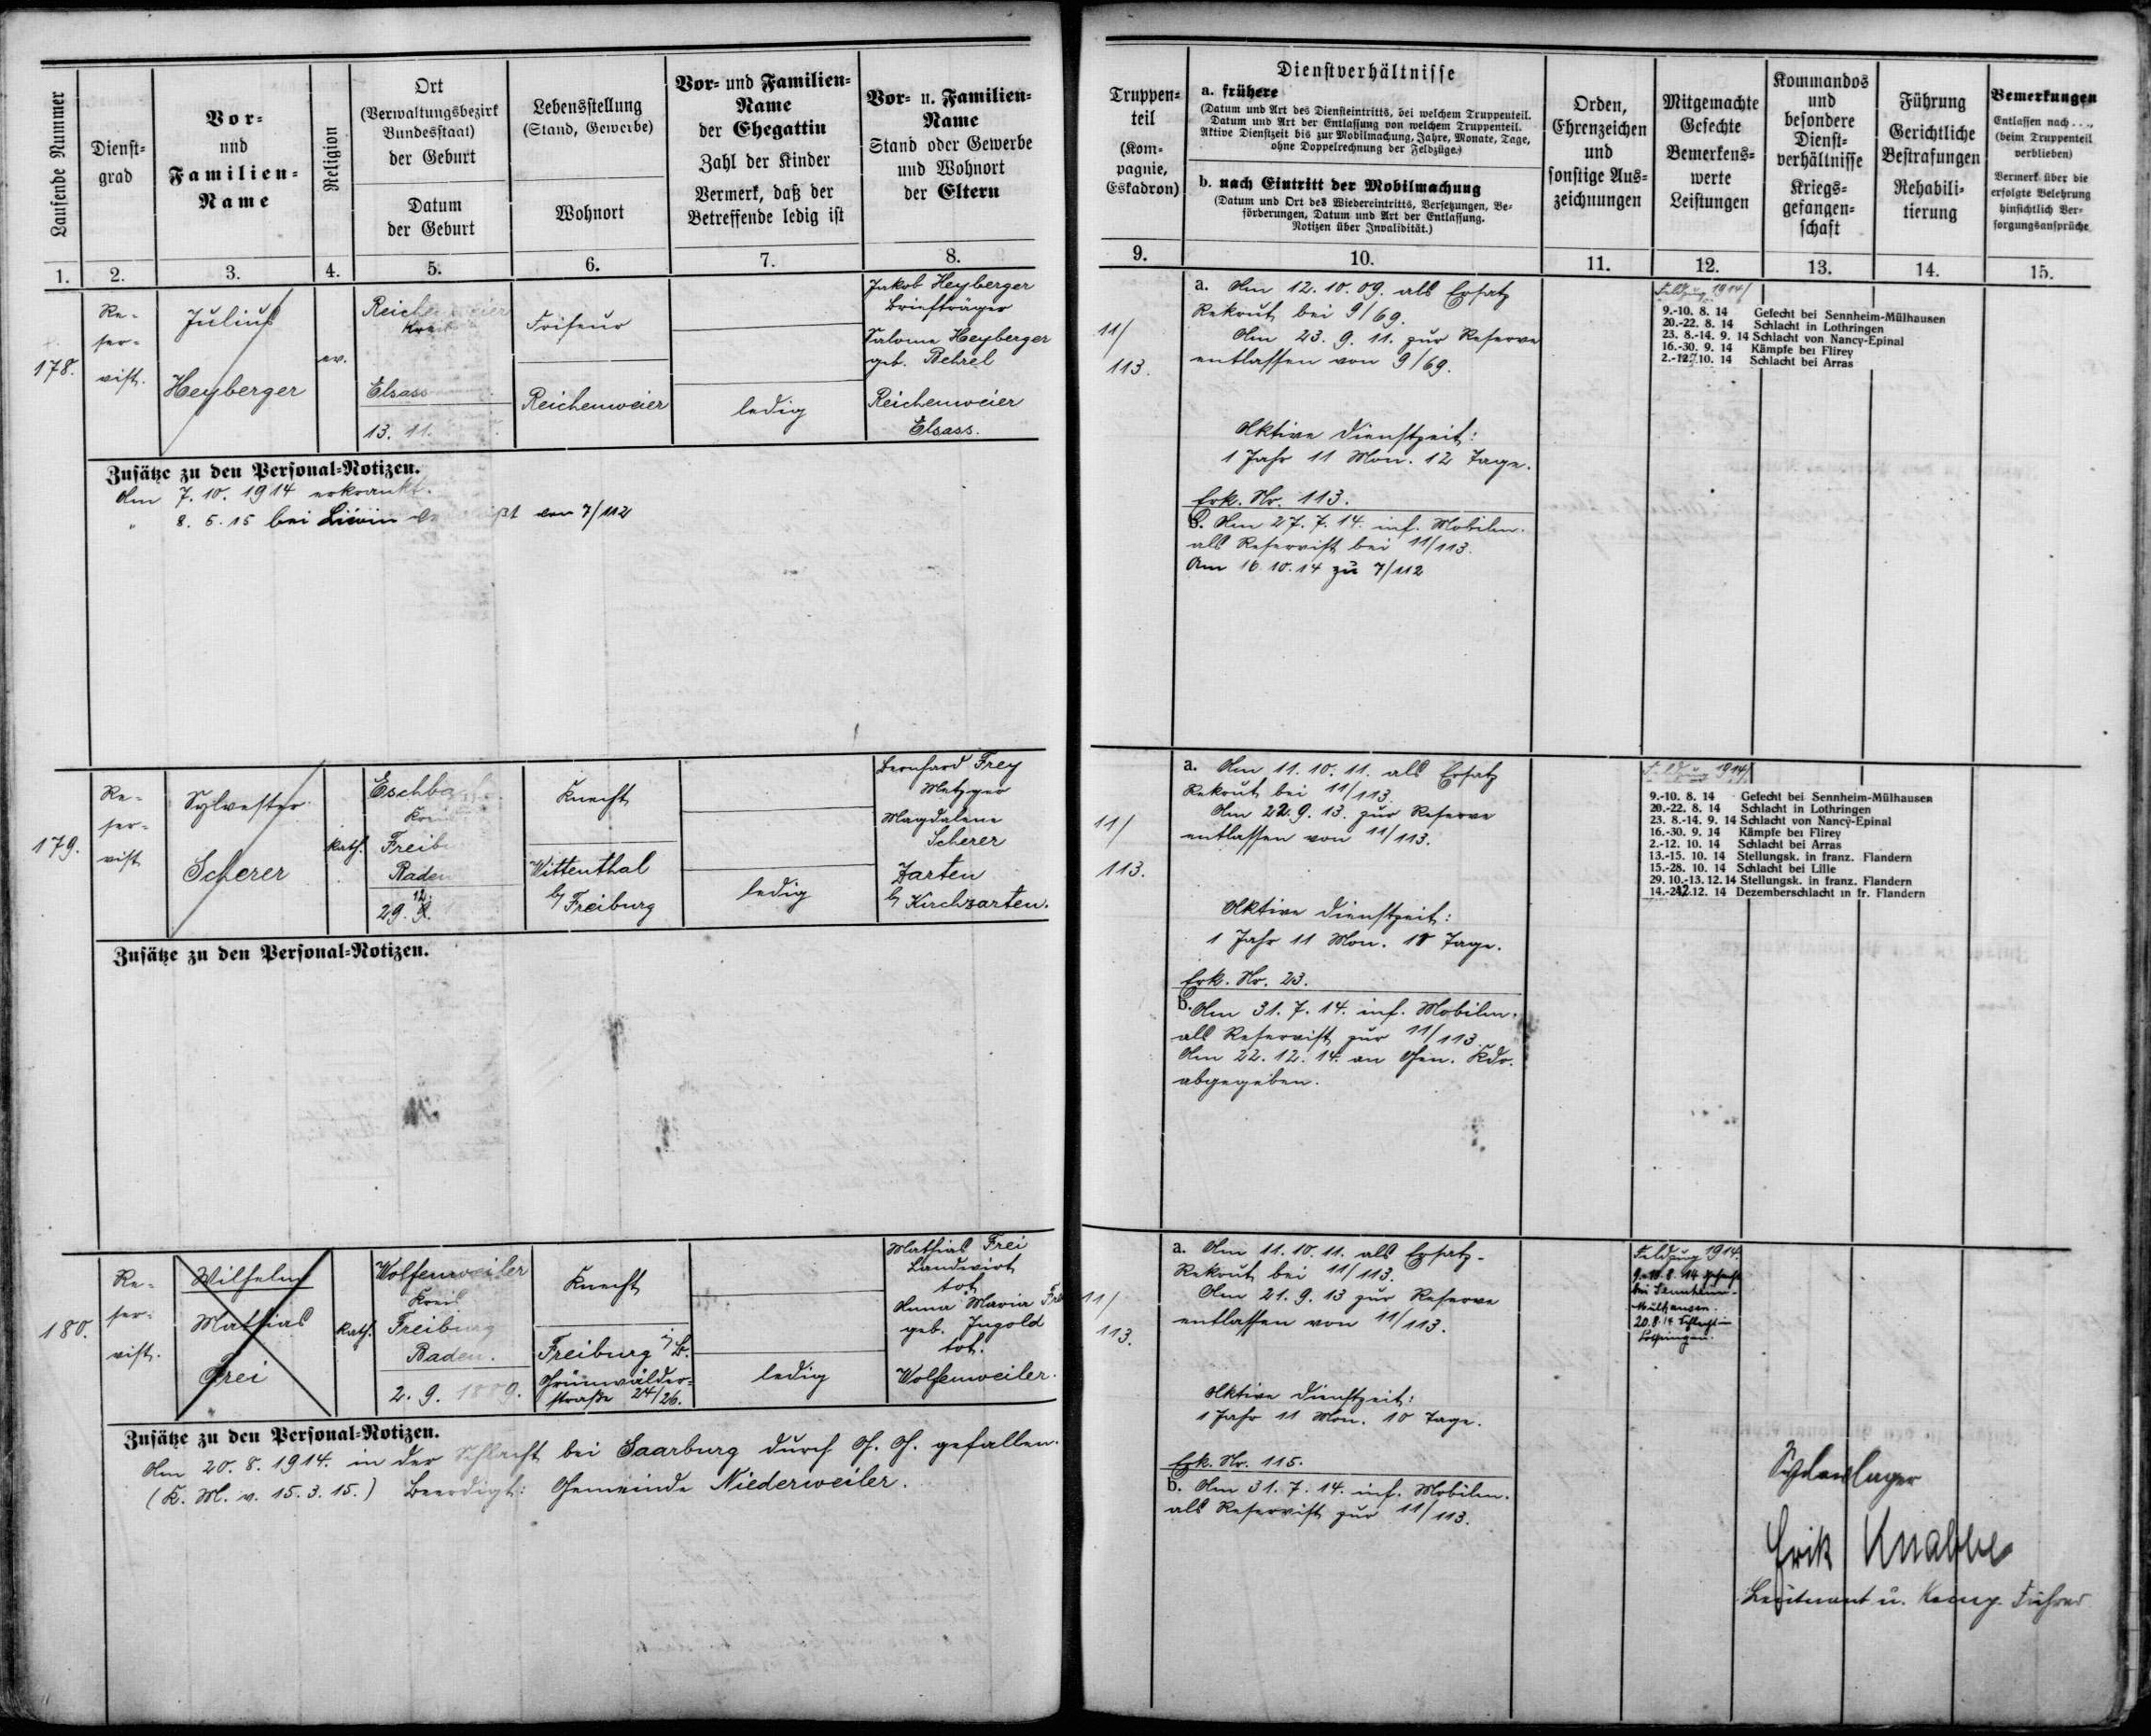 Laufende Nummer
Dienst-
grad
Vor-
und
Familien-
Name
Religion
Ort
(Verwaltungsbezirk
Bundesstaat)
der Geburt
Datum
der Geburt
Lebensstellung
(Stand, Gewerbe)
Wohnort
Vor- und Familien-
Name
der Ehegattin
Zahl der Kinder
Vermerk, daß der
Betreffende ledig ist
Vor- u. Familien-
Name
Stand oder Gewerbe
und Wohnort
der Eltern
1.
2.
3.
4.
5.
6.
7.
8.
178.
Re-
ser-
vist.
Julius
Heyberger
ev.
Reichenweier
Kreis
Elsass
13. 11.
Friseur
Reichenweier
ledig
Jakob Heyberger
Briefträger
Salome Heyberger
geb. Behrel
Reichenweier
Elsass.
Zusätze zu den Personal-Notizen.
Am 7.10.1914 erkrankt.
" 8.5.15 bei Liévin vermißt von 7/112
179.
Re-
ser-
vist
Sylvester
Scherer
kath.
Eschbach
Kreis
Freib
Baden
29. 12.
Knecht
Wittenthal
b/ Freiburg
ledig
Bernhard Frey
Metzger
Magdalena
Scherer
Zarten
b/ Kirchzarten.
Zusätze zu den Personal-Notizen.
180.
Re-
ser-
vist.
Wilhelm
Mathias
Frei
kath.
Wolfenweiler
Kreis
Freiburg
Baden.
2. 9. 1889.
Knecht
Freiburg i/B.
Grünwälder-
straße 24/26.
ledig
Mathias Frei
Landwirt
tot
Anna Maria Frei
geb. Ingold
tot.
Wolfenweiler.
Zusätze zu den Personal-Notizen.
Am 20.8.1914. in der Schlacht bei Saarburg durch G. G. gefallen.
(K. M. v. 15.3.15.) Beerdigt: Gemeinde Niederweiler.
Truppen-
teil
(Kom-
pagnie,
Eskadron)
Dienstverhältnisse
a. frühere
(Datum und Art des Diensteintritts, bei welchem Truppenteil.
Datum und Art der Entlassung von welchem Truppenteil.
Aktive Dienstzeit bis zur Mobilmachung, Jahre, Monate, Tage,
ohne Doppelrechnung der Feldzüge.)
b. nach Eintritt der Mobilmachung
(Datum und Ort des Wiedereintritts, Versetzungen, Be-
förderungen, Datum und Art der Entlassung.
Notizen über Invalidität.)
Orden,
Ehrenzeichen
und
sonstige Aus-
zeichnungen
Mitgemachte
Gefechte
Bemerkens-
werte
Leistungen
Kommandos
und
besondere
Dienst-
verhältnisse
Kriegs-
gefangen-
schaft
Führung
Gerichtliche
Bestrafungen
Rehabili-
tierung
Bemerkungen
Entlassen nach ...,
(beim Truppenteil
verblieben)
Vermerk über die
erfolgte Belehrung
hinsichtlich Ver-
sorgungsansprüche
9.
10.
11.
12.
13.
14.
15.
11/
113.
a. Am 12.10.09. als Ersatz
Rekrut bei 9/69.
Am 23.9.11. zur Reserve
entlassen von 9/69.
Aktive Dienstzeit:
1 Jahr 11 Mon. 12 Tage.
Erk. Nr. 113.
b. Am 27.7.14. inf. Mobilm.
als Reservist bei 11/113.
Am 16.10.14 zu 7/112
Feldzug 1914/
9.-10. 8. 14 Gefecht bei Sennheim-Mülhausen
20.-22. 8. 14 Schlacht in Lothringen
23. 8.-14. 9. 14 Schlacht von Nancy-Epinal
16.-30. 9. 14 Kämpfe bei Flirey
2.-7.10. 14 Schlacht bei Arras
11/
113.
a. Am 11.10.11. als Ersatz
Rekrut bei 11/113.
Am 22.9.13. zur Reserve
entlassen von 11/113.
Aktive Dienstzeit:
1 Jahr 11 Mon. 10 Tage.
Erk. Nr. 23.
b. Am 31.7.14. inf. Mobilm.
als Reservist zur 11/113.
Am 22.12.14. an Gen. Kdo.
abgegeben.
Feldzug 1914/
9.-10. 8. 14 Gefecht bei Sennheim-Mülhausen
20.-22. 8. 14 Schlacht in Lothringen
23. 8.-14. 9. 14 Schlacht von Nancy-Epinal
16.-30. 9. 14 Kämpfe bei Flirey
2.-12. 10. 14 Schlacht bei Arras
13.-15. 10. 14 Stellungsk. in franz. Flandern
15.-28. 10. 14 Schlacht bei Lille
29. 10.-13. 12. 14 Stellungsk. in franz. Flandern
14.-22.12. 14 Dezemberschlacht in fr. Flandern
11/
113.
a. Am 11.10.11. als Ersatz-
Rekrut bei 11/113.
Am 21.9.13 zur Reserve
entlassen von 11/113.
Aktive Dienstzeit:
1 Jahr 11 Mon. 10 Tage.
Erk. Nr. 115.
b. Am 31.7.14. inf. Mobilm.
als Reservist zur 11/113.
Feldzug 1914.
9.-10.8.14 Gefecht
bei Sennheim-
Mülhausen.
20.8.14 Schlacht in
Lothringen.
Erik Knabbe
Leutnant u. Komp. Führer